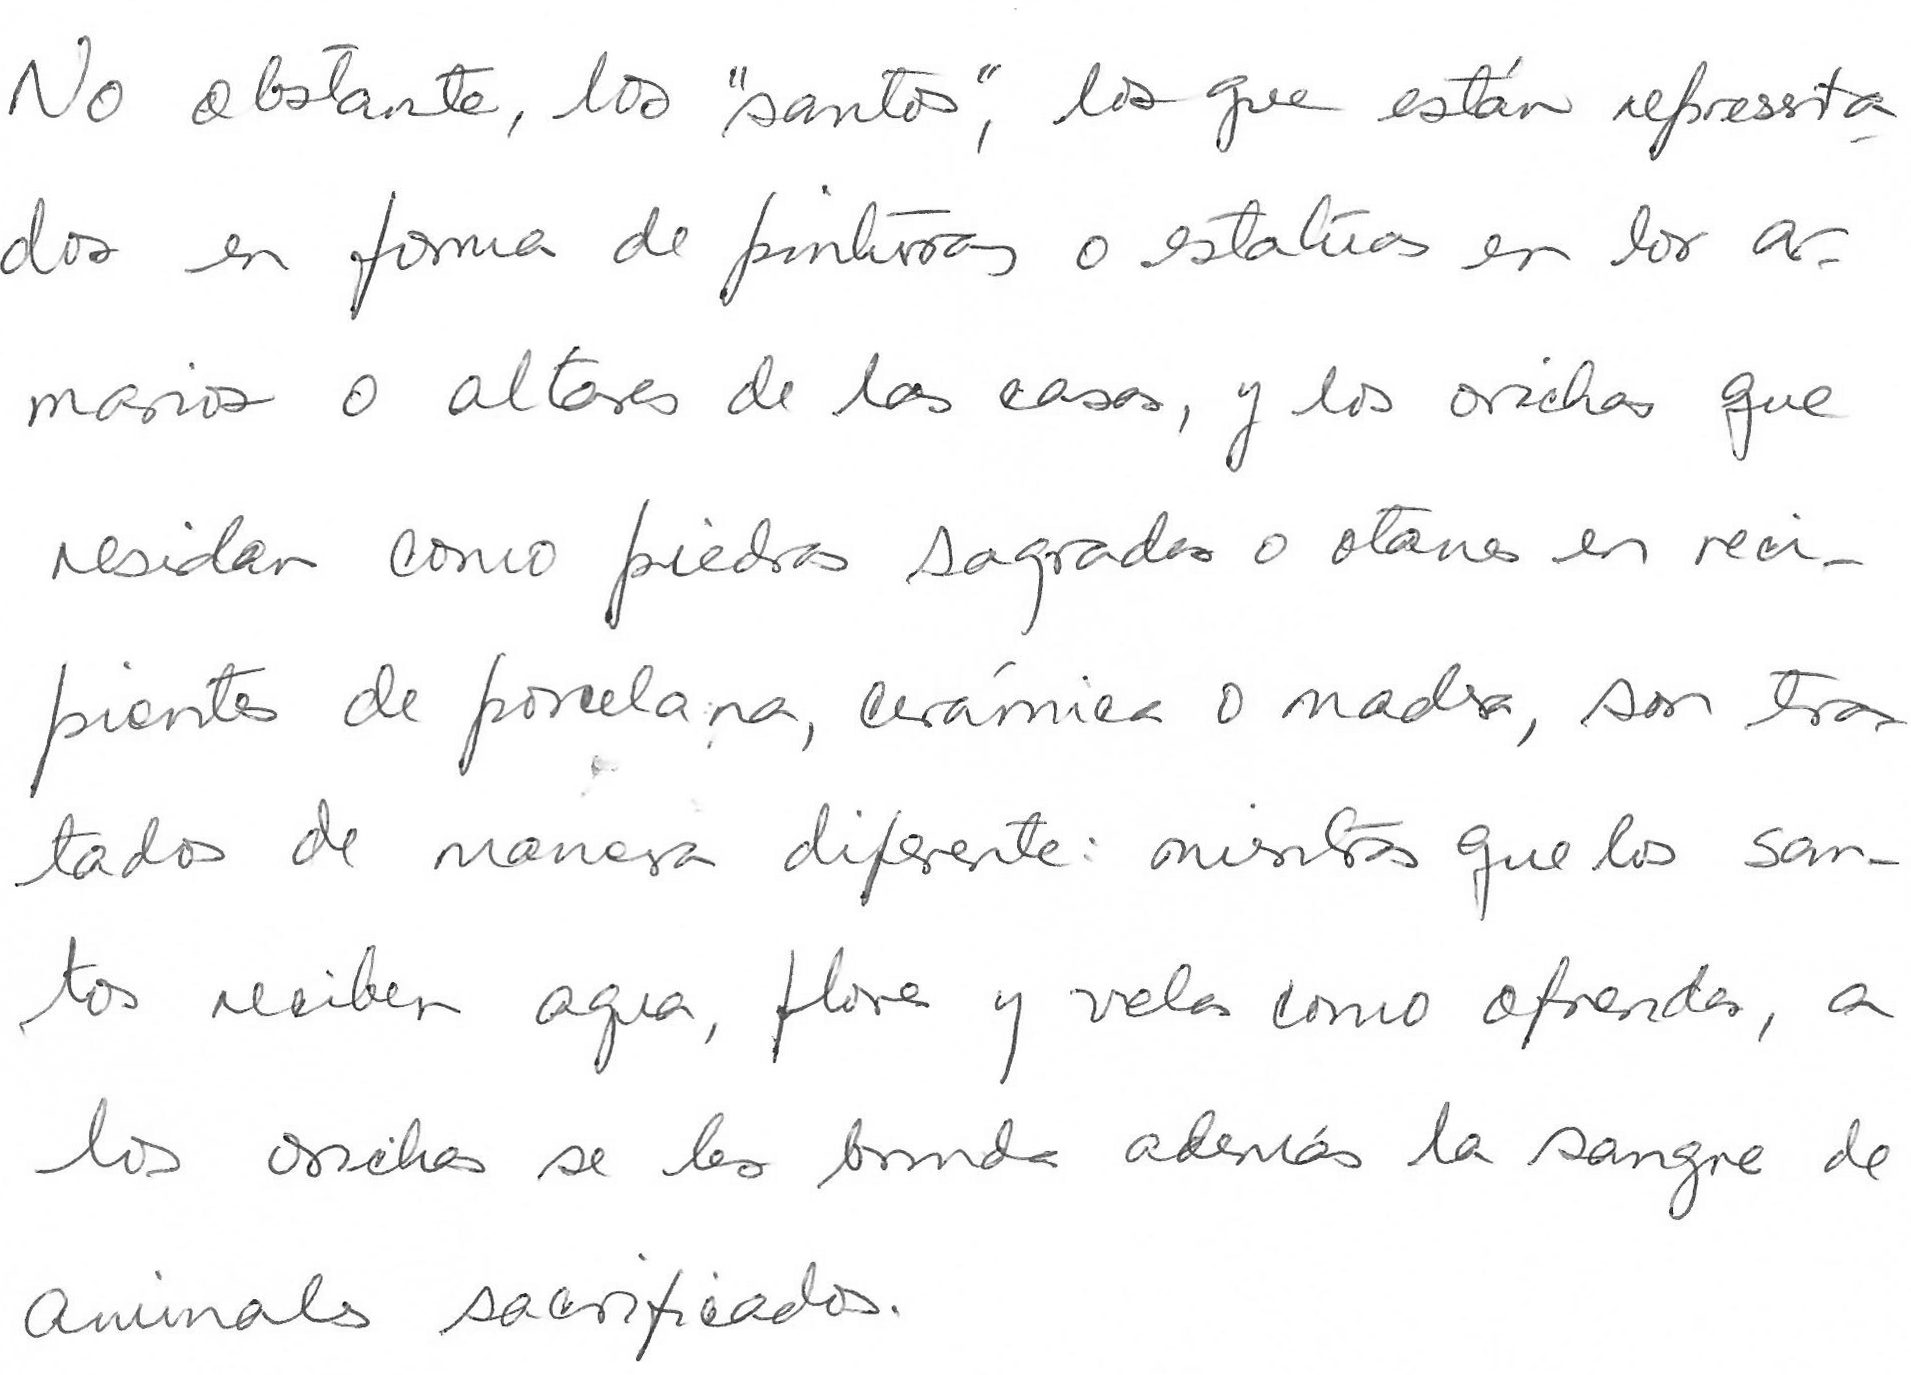 No obstante, los "santos", los que están representa-
dos en forma de pinturas o estatuas en los ar-
marios o altares de las casas, y los orichas que
residan como piedras sagradas o otanes en reci-
pientes de porcelana, cerámica o madera, son tra-
tados de manera diferente: mientras que los san-
tos reciben agua, flores y velas como ofrendas, a
los orichas se les brinda además la sangre de
animales sacrificados.